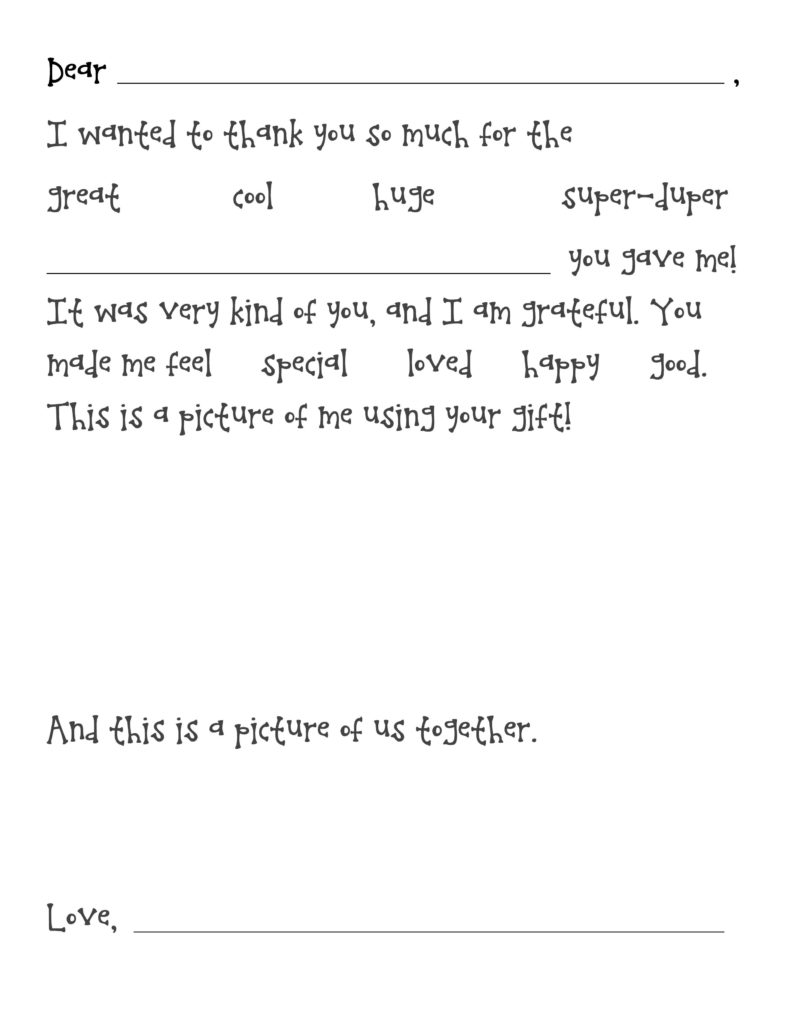 Dear ,
I wanted to thank you so much for the
great cool huge super-duper
you gave me!
It was very kind of you, and I am grateful. You
made me feel special loved happy good.
This is a picture of me using your gift!
And this is a picture of us together.
Love,